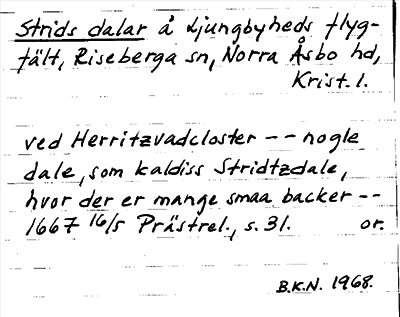 Strids dalar å Ljungbyheds flyg-
fält, Riseberga sn, Norra Åsbo hd,
Krist. l.
ved Herritzvadcloster -- nogle
dale, som kaldiss Stridtzdale,
hvor der er mange smaa backer --
1667 16/5 Prästrel., s. 31. or.
B.K.N. 1968.